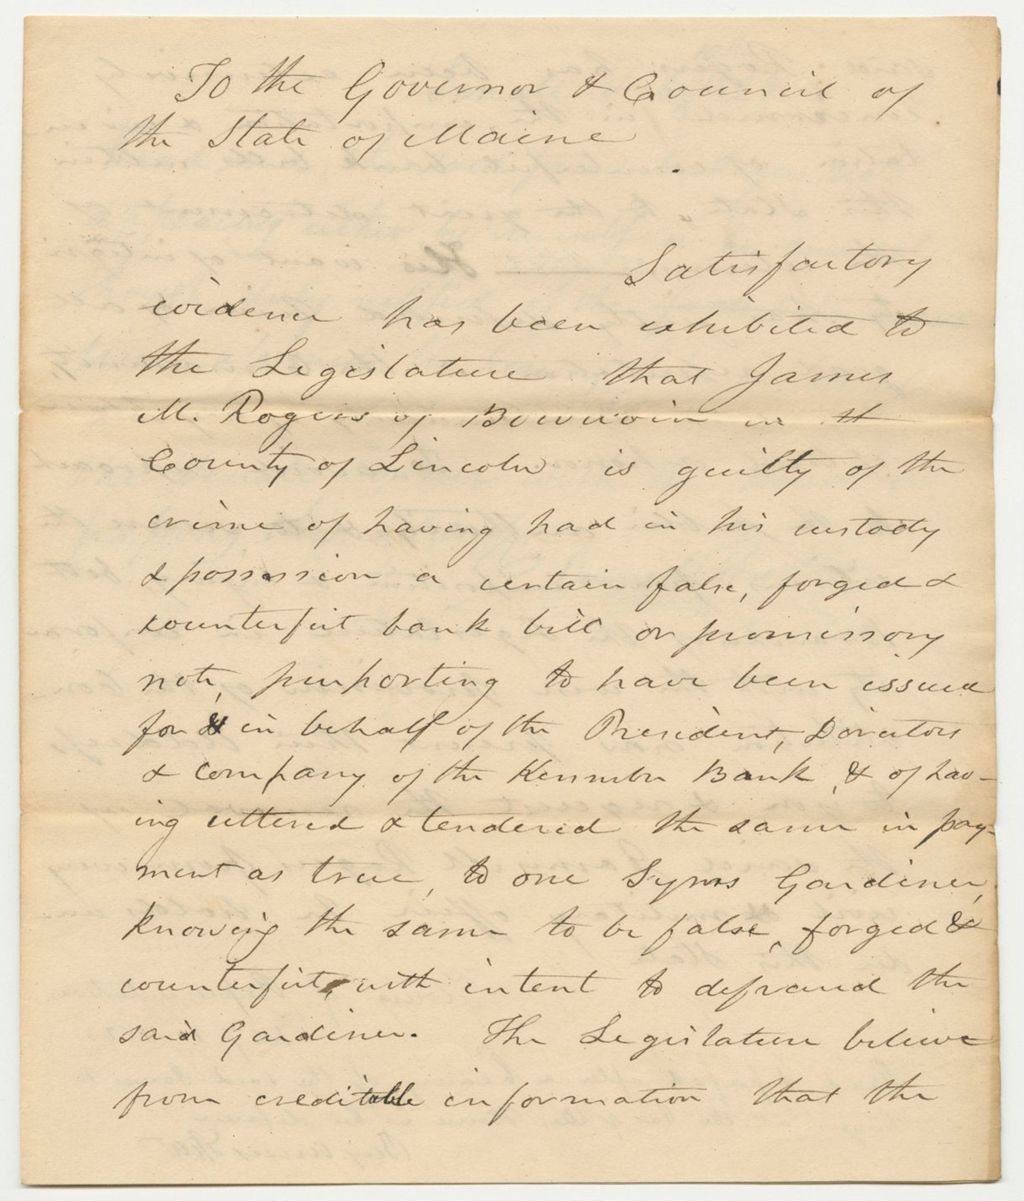 To the Governor & Council of
the State of Maine
Satisfactory
evidence has been exhibited to
the Legislature that James
M. Rogers of Bowdoin in the
County of Lincoln is guilty of the
crime of having had in his custody
& possession a certain false, forged &
counterfeit bank bill or promissory
note, purporting to have been issued
for & in behalf of the President, Directors
& company of the Kennebec Bank, & of hav-
ing uttered & tendered the same in pay-
ment as true, to one Gardiner,
knowing the same to be false, forged &
counterfeit, with intent to defraud the
said Gardiner. The Legislature believe
from creditable information that the